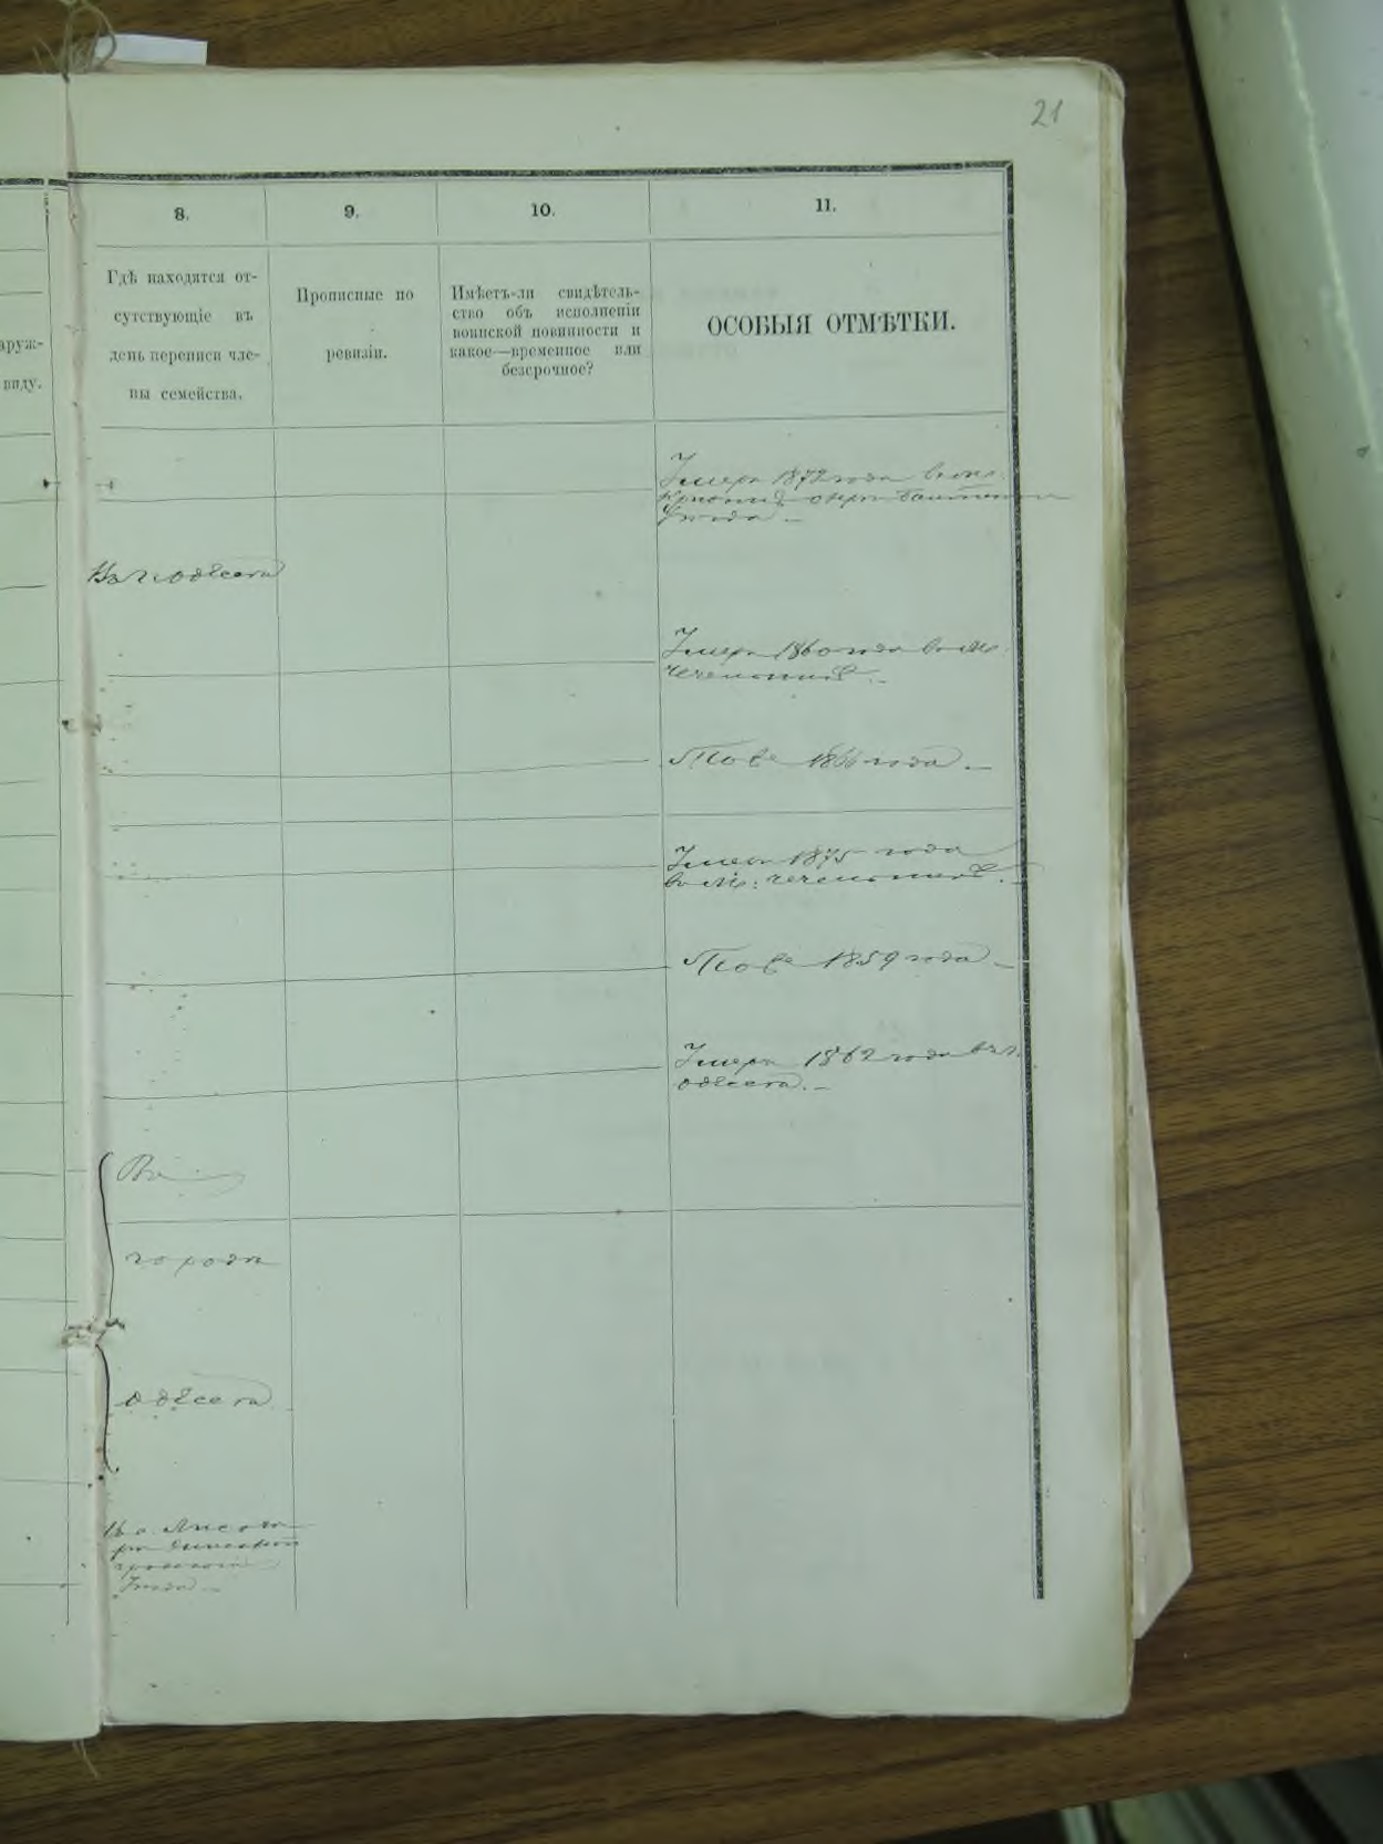 21
8.
9.
10.
11.
аруж-
виду.
Гдѣ находятся от-
сутствующіе въ
день переписи чле-
ны семейства.
Прописные по
ревизіи.
Имѣетъ-ли свидѣтель-
ство объ исполненіи
воинской повинности и
какое—временное или
безсрочное?
ОСОБЫЯ ОТМѢТКИ.
Умеръ 1872 года
уѣзда. –
Въ г Одесса
Умеръ 1860 года въ м.
Тоже 1866 года. –
Умеръ 1875 года
въ м:
Тоже 1859 года –
Умеръ 1862 года въ г.
Одесса. –
Въ
городѣ
Одесса
уѣзда –